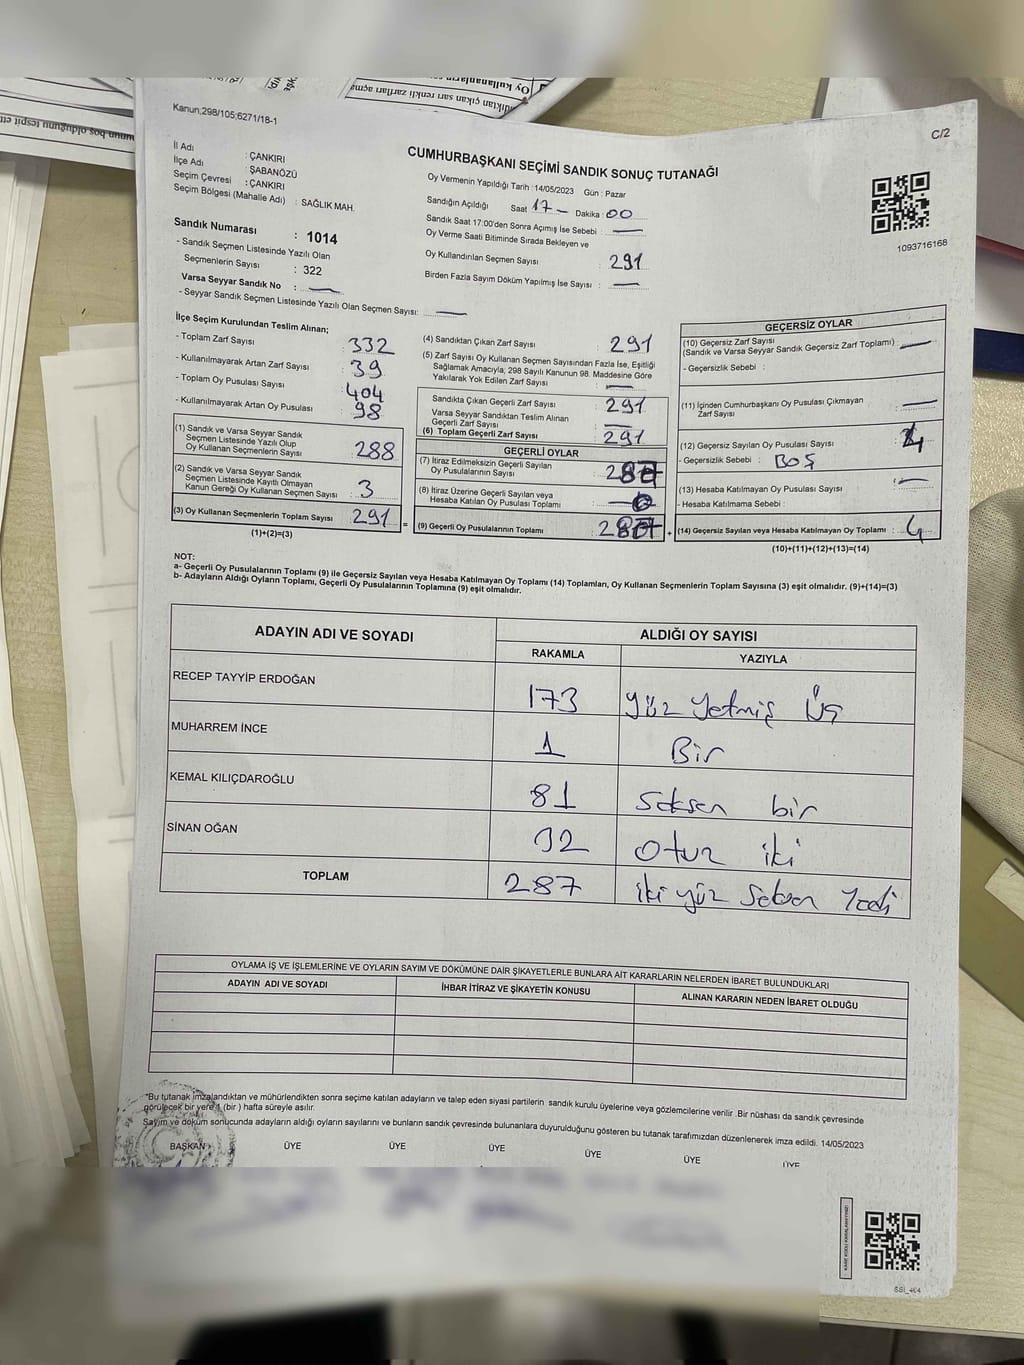 Kanun;298/105;6271/18-1
C/2
İl Adı : ÇANKIRI
İlçe Adı : ŞABANÖZÜ
Seçim Çevresi : ÇANKIRI
Seçim Bölgesi (Mahalle Adı) : SAĞLIK MAH.
Sandık Numarası : 1014
- Sandık Seçmen Listesinde Yazılı Olan
Seçmenlerin Sayısı : 322
Varsa Seyyar Sandık No : —
- Seyyar Sandık Seçmen Listesinde Yazılı Olan Seçmen Sayısı: —
CUMHURBAŞKANI SEÇİMİ SANDIK SONUÇ TUTANAĞI
Oy Vermenin Yapıldığı Tarih : 14/05/2023 Gün : Pazar
Sandığın Açıldığı Saat 17 – Dakika : 00
Sandık Saat 17:00'den Sonra Açımış İse Sebebi : —
Oy Verme Saati Bitiminde Sırada Bekleyen ve
Oy Kullandırılan Seçmen Sayısı : 291
Birden Fazla Sayım Döküm Yapılmış İse Sayısı : —
1093716168
İlçe Seçim Kurulundan Teslim Alınan;
- Toplam Zarf Sayısı : 332
- Kullanılmayarak Artan Zarf Sayısı : 39
- Toplam Oy Pusulası Sayısı : 404
- Kullanılmayarak Artan Oy Pusulası : 98
(1) Sandık ve Varsa Seyyar Sandık
Seçmen Listesinde Yazılı Olup
Oy Kullanan Seçmenlerin Sayısı : 288
(2) Sandık ve Varsa Seyyar Sandık
Seçmen Listesinde Kayıtlı Olmayan
Kanun Gereği Oy Kullanan Seçmen Sayısı : 3
(3) Oy Kullanan Seçmenlerin Toplam Sayısı : 291
(1)+(2)=(3)
(4) Sandıktan Çıkan Zarf Sayısı : 291
(5) Zarf Sayısı Oy Kullanan Seçmen Sayısından Fazla İse, Eşitliği
Sağlamak Amacıyla, 298 Sayılı Kanunun 98. Maddesine Göre
Yakılarak Yok Edilen Zarf Sayısı : —
Sandıkta Çıkan Geçerli Zarf Sayısı : 291
Varsa Seyyar Sandıktan Teslim Alınan
Geçerli Zarf Sayısı : —
(6) Toplam Geçerli Zarf Sayısı : 291
GEÇERLİ OYLAR
(7) İtiraz Edilmeksizin Geçerli Sayılan
Oy Pusulalarının Sayısı : 287
(8) İtiraz Üzerine Geçerli Sayılan veya
Hesaba Katılan Oy Pusulası Toplamı :
(9) Geçerli Oy Pusulalarının Toplamı : 287
GEÇERSİZ OYLAR
(10) Geçersiz Zarf Sayısı
(Sandık ve Varsa Seyyar Sandık Geçersiz Zarf Toplamı) : —
- Geçersizlik Sebebi :
(11) İçinden Cumhurbaşkanı Oy Pusulası Çıkmayan
Zarf Sayısı : —
(12) Geçersiz Sayılan Oy Pusulası Sayısı : 4
- Geçersizlik Sebebi : BOŞ
(13) Hesaba Katılmayan Oy Pusulası Sayısı : —
- Hesaba Katılmama Sebebi :
(14) Geçersiz Sayılan veya Hesaba Katılmayan Oy Toplamı : 4
(10)+(11)+(12)+(13)=(14)
NOT:
a- Geçerli Oy Pusulalarının Toplamı (9) ile Geçersiz Sayılan veya Hesaba Katılmayan Oy Toplamı (14) Toplamları, Oy Kullanan Seçmenlerin Toplam Sayısına (3) eşit olmalıdır. (9)+(14)=(3)
b- Adayların Aldığı Oyların Toplamı, Geçerli Oy Pusulalarının Toplamına (9) eşit olmalıdır.
ADAYIN ADI VE SOYADI ALDIĞI OY SAYISI
RAKAMLA YAZIYLA
RECEP TAYYİP ERDOĞAN 173 yüz yetmiş üç
MUHARREM İNCE 1 Bir
KEMAL KILIÇDAROĞLU 81 Seksen bir
SİNAN OĞAN 32 otuz iki
TOPLAM 287 iki yüz Seksen Yedi
OYLAMA İŞ VE İŞLEMLERİNE VE OYLARIN SAYIM VE DÖKÜMÜNE DAİR ŞİKAYETLERLE BUNLARA AİT KARARLARIN NELERDEN İBARET BULUNDUKLARI
ADAYIN ADI VE SOYADI İHBAR İTİRAZ VE ŞİKAYETİN KONUSU ALINAN KARARIN NEDEN İBARET OLDUĞU
*Bu tutanak imzalandıktan ve mühürlendikten sonra seçime katılan adayların ve talep eden siyasi partilerin sandık kurulu üyelerine veya gözlemcilerine verilir. Bir nüshası da sandık çevresinde
görülecek bir yere 1 (bir ) hafta süreyle asılır.
Sayım ve döküm sonucunda adayların aldığı oyların sayılarını ve bunların sandık çevresinde bulunanlara duyurulduğunu gösteren bu tutanak tarafımızdan düzenlenerek imza edildi. 14/05/2023
BAŞKAN ÜYE ÜYE ÜYE ÜYE ÜYE ÜYE